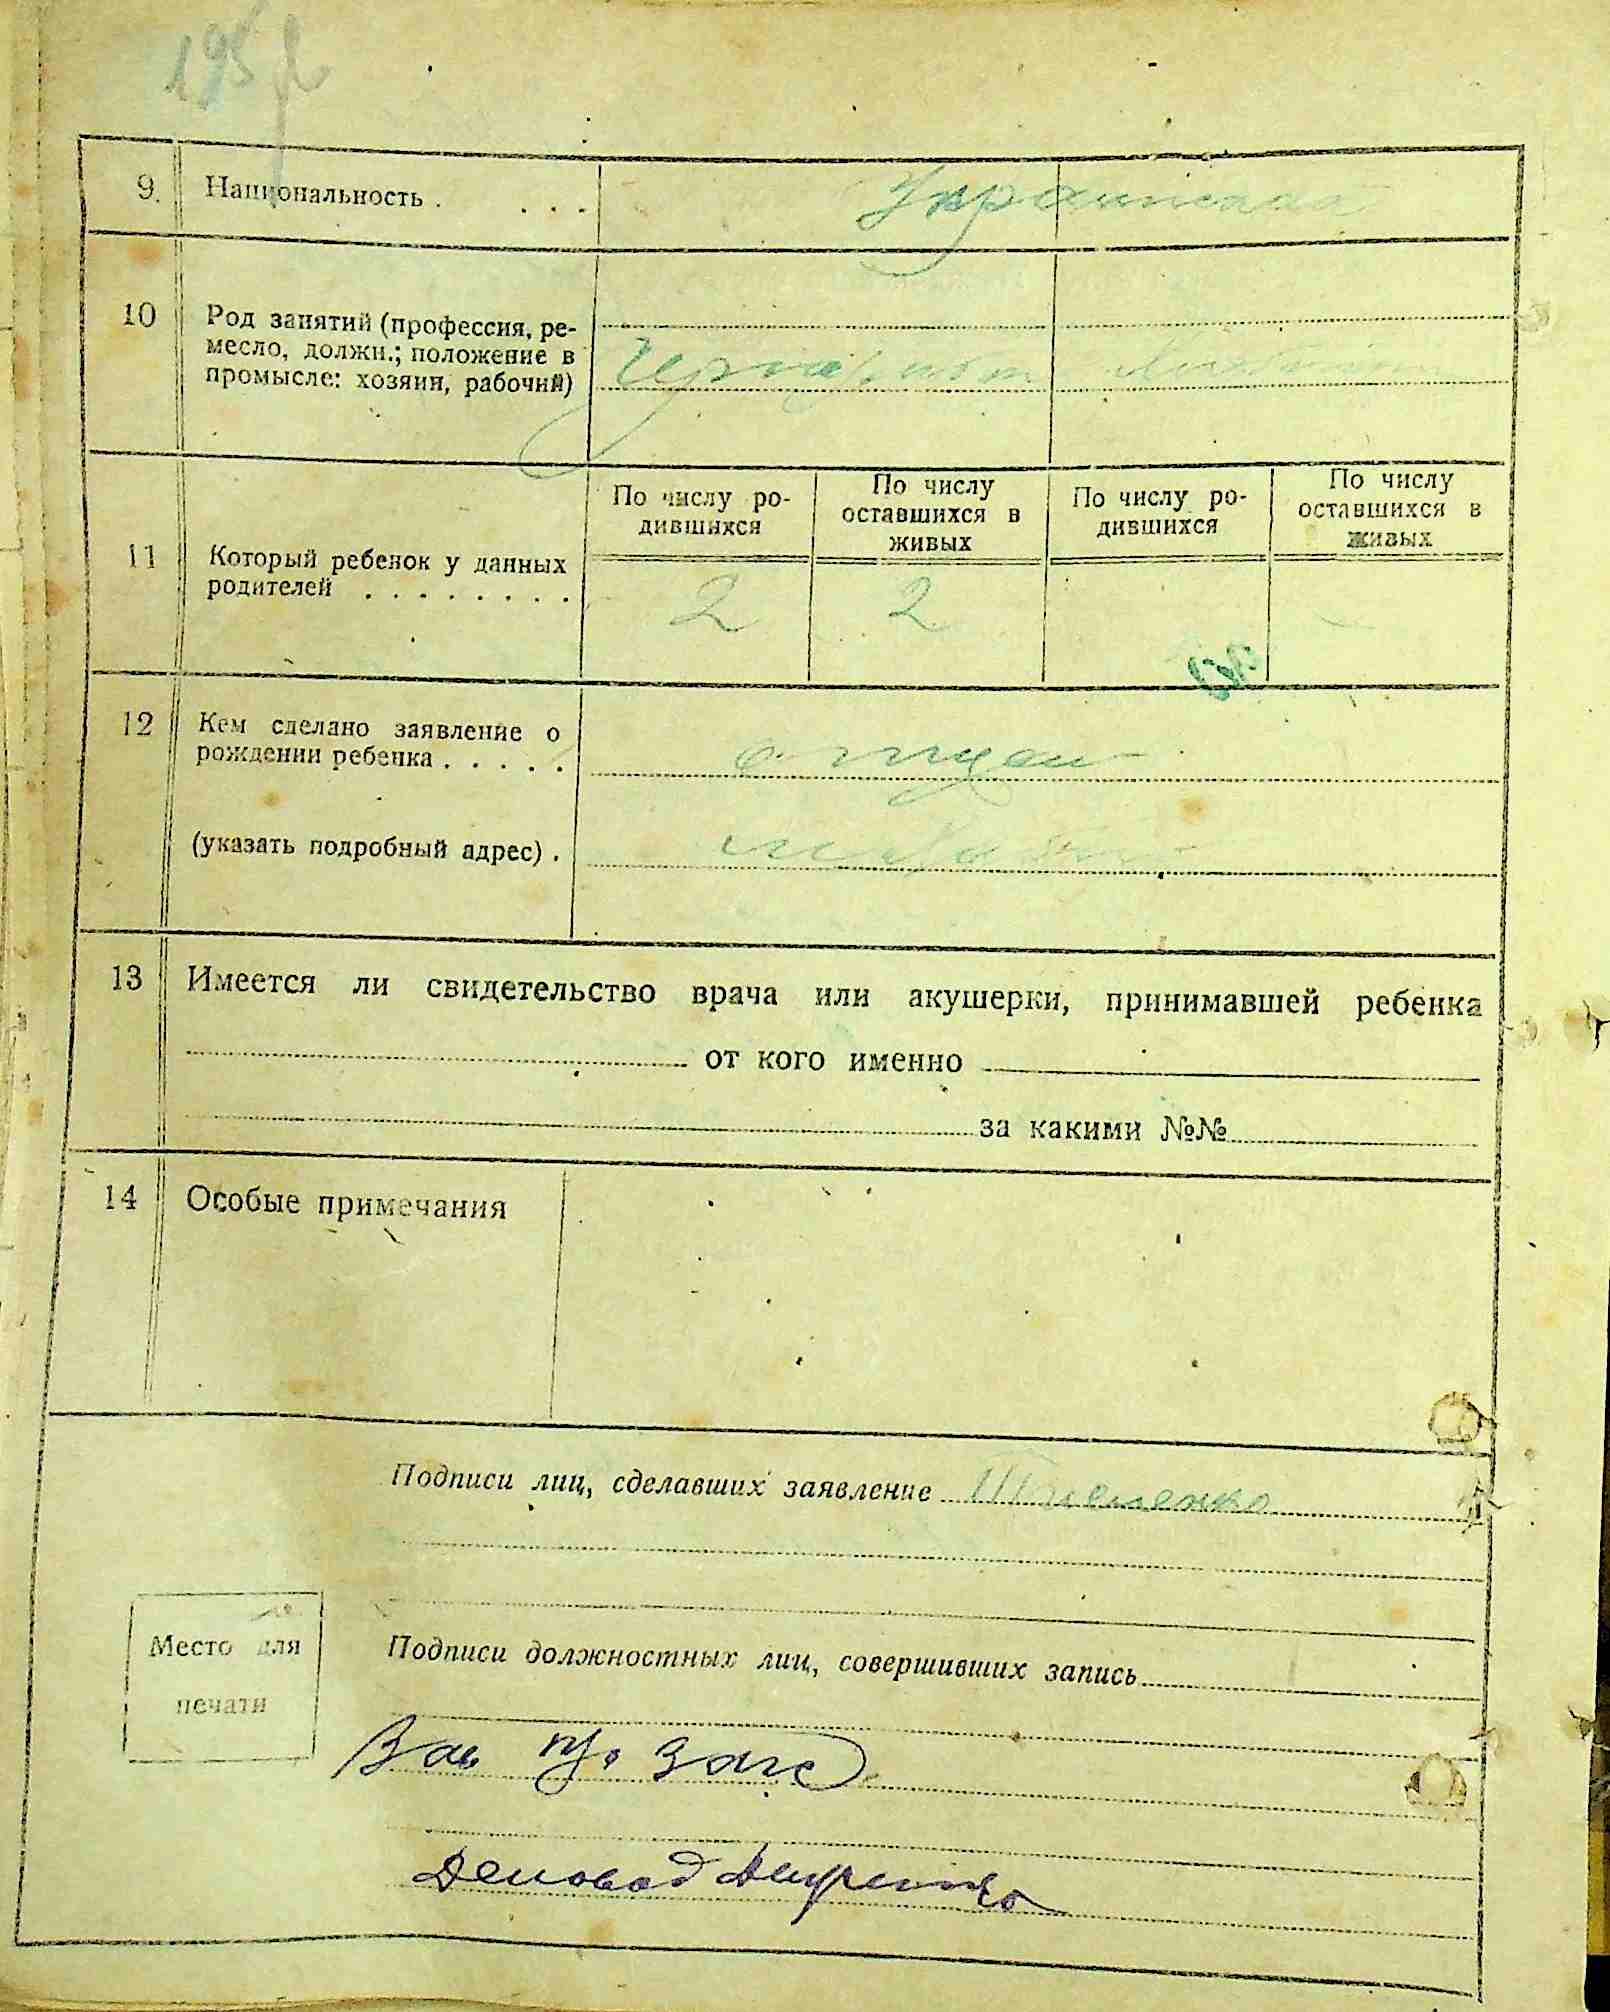 9. Национальность . . . . Украинская
10 Род занятий (профессия, ре-
месло, должн.; положение в
промысле: хозяин, рабочий)
11 Который ребенок у данных
родителей . . . . . . . .
По числу ро-
дившихся
По числу
оставшихся в
живых
По числу ро-
дившихся
По числу
оставшихся в
живых
2 2
12 Кем сделано заявление о
рождении ребенка . . . . . отцом
(указать подробный адрес) .
13 Имеется ли свидетельство врача или акушерки, принимавшей ребенка
от кого именно
за какими №№
14 Особые примечания
Подписи лиц, сделавших заявление
Место для
печати
Подписи должностных лиц, совершивших запись
Зав загс